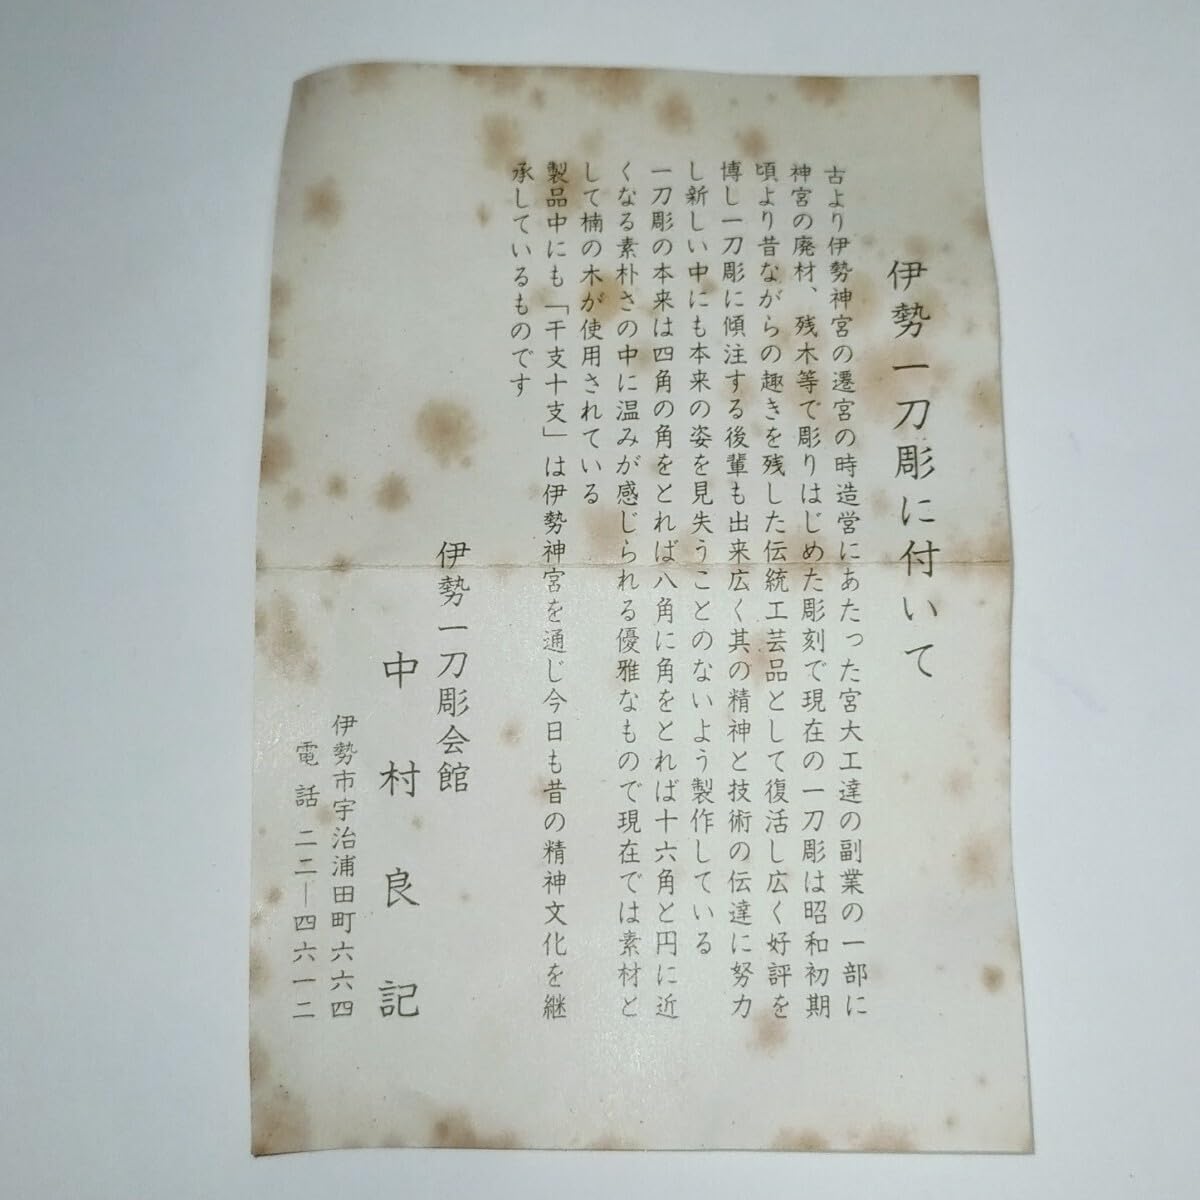 伊勢一刀彫に付いて
古より伊勢神宮の遷宮の時造営にあたった宮大工達の副業の一部に
神宮の廃材、残木等で彫りはじめた彫刻で現在の一刀彫は昭和初期
頃より昔ながらの趣きを残した伝統工芸品として復活し広く好評を
博し一刀彫に傾注する後輩も出来広く其の精神と技術の伝達に努力
し新しい中にも本来の姿を見失うことのないよう製作している
一刀彫の本来は四角の角をとれば八角に角をとれば十六角と円に近
くなる素朴さの中に温みが感じられる優雅なもので現在では素材と
して楠の木が使用されている
製品中にも「干支十支」は伊勢神宮を通じ今日も昔の精神文化を継
承しているものです
伊勢一刀彫会館
中村良記
伊勢市宇治浦田町六六四
電話 二二―四六一二